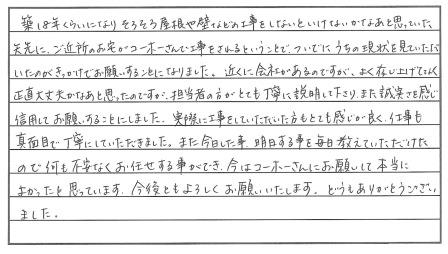 築18年くらいになり そろそろ屋根や壁などの工事をしないといけないかなあと思っていた
矢先に、ご近所のお宅がコーホーさんで工事をされるということで、ついでにうちの現状を見ていただ
いたのがきっかけでお願いすることになりました。近くに会社があるのですが、よく存い上げてなく
正直大丈夫かなあと思ったのですが、担当者の方がとても丁寧に説明して下さり、また誠実さを感じ
信用してお願いすることにしました。実際に工事をしていただいた方もとても感じが良く、仕事も
真面目で丁寧にしていただきました。また今日した事、明日する事を毎日教えていただけた
ので何も不安なくお任せする事ができ、今はコーホーさんにお願いして本当に
よかったと思っています。今後ともよろしくお願いいたします。どうもありがとうござい
ました。